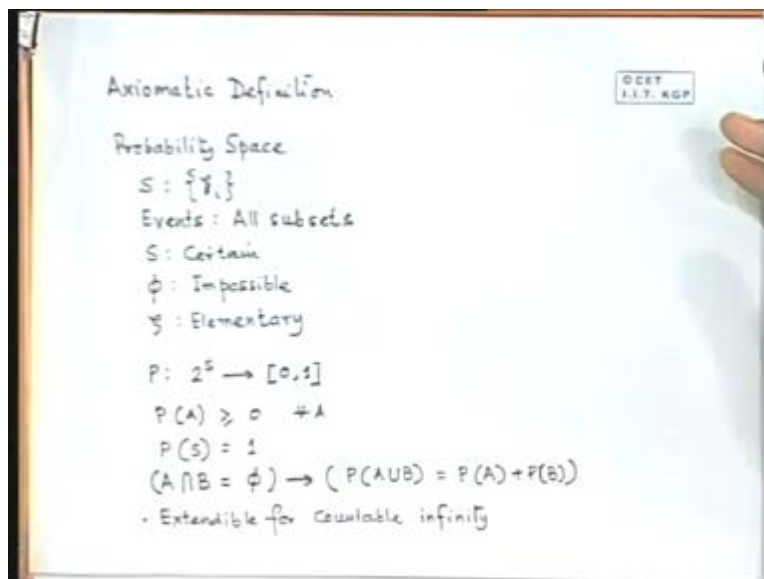 Axiomatic Definition
OCET
I.I.T. KGP
Probability Space
S : {ξi}
Events : All subsets
S : Certain
ϕ : Impossible
ξ : Elementary
P : 2^S → [0,1]
P(A) ≥ 0 ∀A
P(S) = 1
(A∩B = ϕ) → (P(A∪B) = P(A)+P(B))
· Extendible for countable infinity